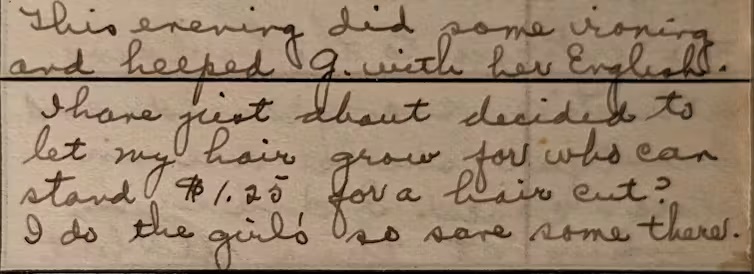 This evening did some ironing
and helped G. with her English.
I have just about decided to
let my hair grow for who can
stand $1.25 for a hair cut?
I do the girls' so save some there.